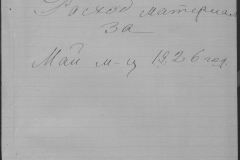 Расход материал
за
Май м-ц 1926 год.